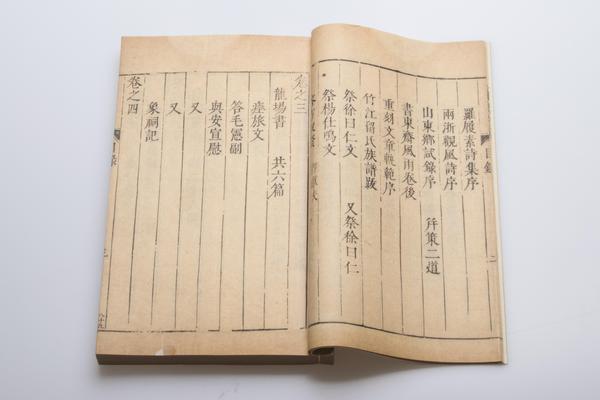 目錄
二
羅履素詩集序
兩浙觀風詩序
山東鄉試錄序 并策二道
書東齋風雨卷後
重刻文章軌範序
竹江劉氏族譜跋
祭徐曰仁文 又祭徐曰仁
祭楊仕鳴文
卷之三
龍場書 共六篇
瘞旅文
答毛憲副
與安宣慰
又
又
象祠記
卷之四
目錄